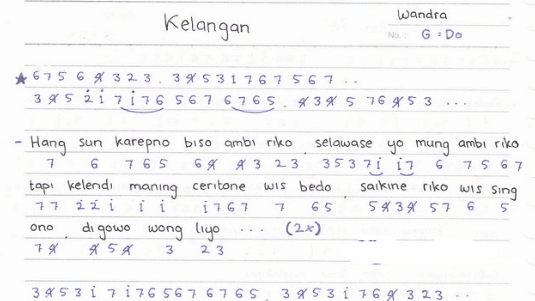 Kelangan
Wandra
No.: G = Do
★ 6 7 5 6 4̸ 3 2 3 . 3 4̸ 5 3 1 7 6 7 5 6 7 . .
3 4̸ 5 2̇ i̇ 7 i̇ 7 6 5 6 7 6 7 6 5 . 4̸ 3 4̸ 5 7 6 4̸ 5 3 ...
- Hang sun karepno biso ambi riko . selawase yo mung ambi riko
7 6 7 6 5 6 4̸ 4̸ 3 2 3 3 5 3 7 i̇ i̇ 7 6 7 5 6 7
tapi kelendi maning ceritone wis bedo . saikine riko wis sing
7 7 2̇ 2̇ i̇ i̇ i̇ i̇ 7 6 7 7 6 5 5 4̸ 3 4̸ 5 7 6 5
ono . digowo wong liyo ... (2x)
7 4̸ 4̸ 5 4̸ 3 2 3
3 4̸ 5 3 i̇ 7 i̇ 7 6 5 6 7 6 7 6 5 . 3 4̸ 5 3 i̇ 7 6 4̸ 3 2 3 . .